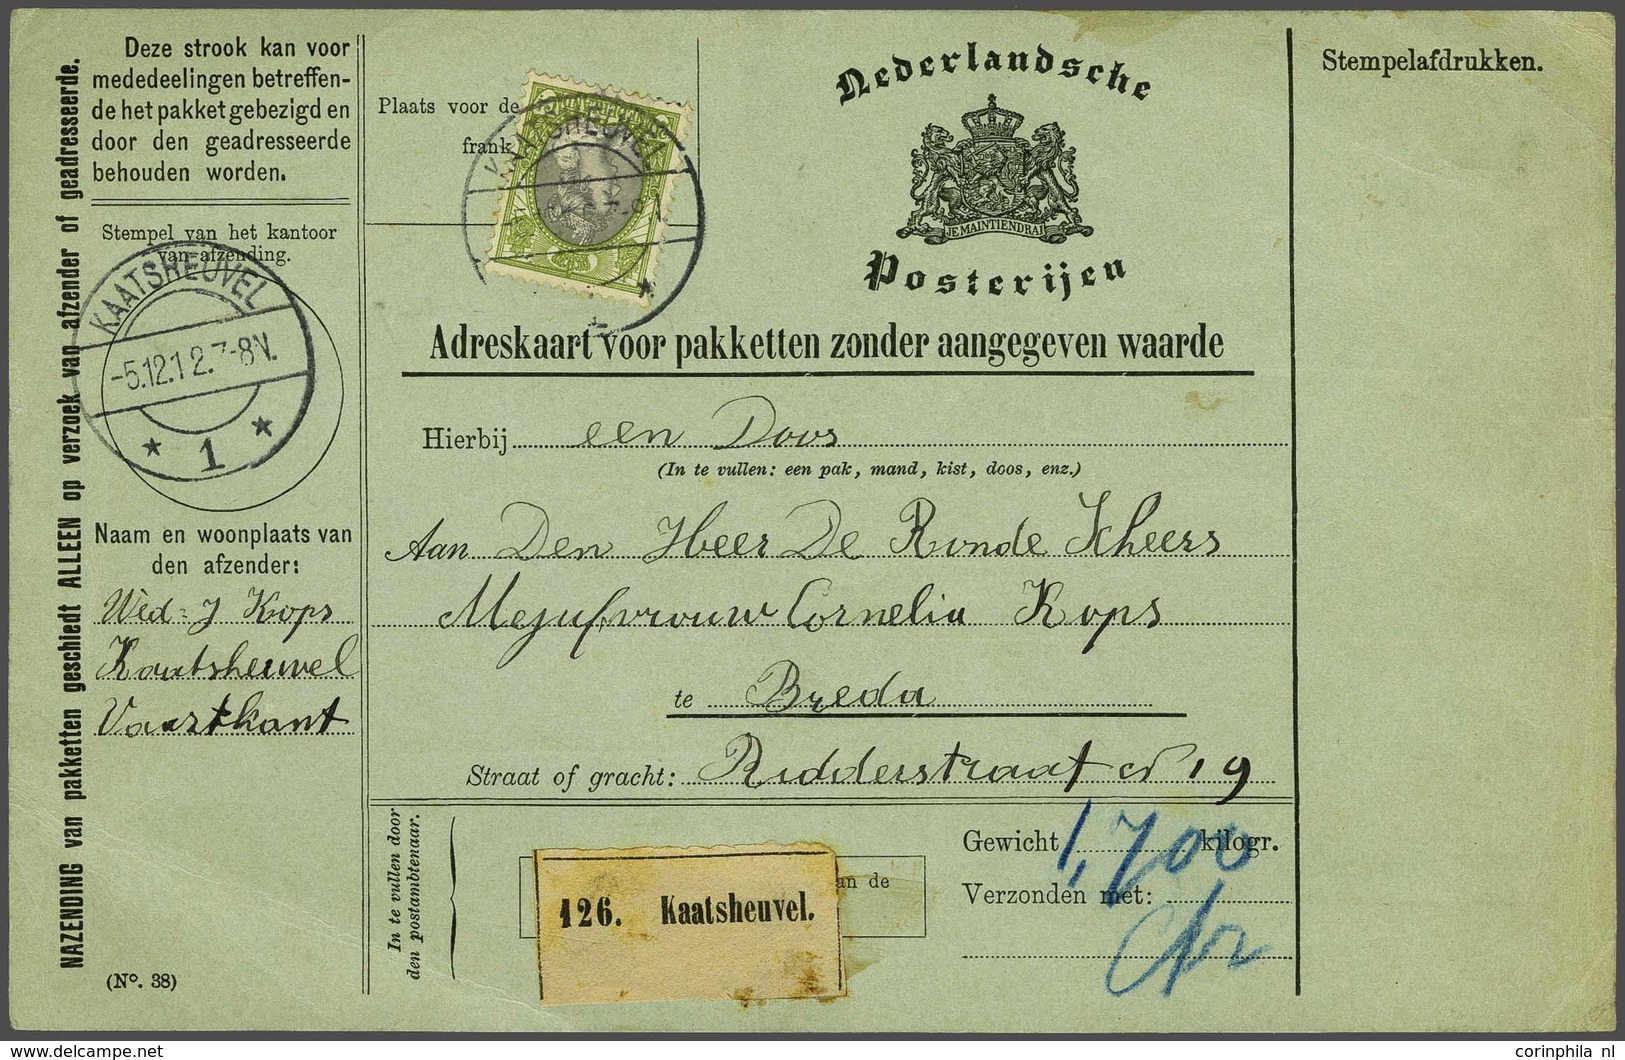 NAZENDING van pakketten geschiedt ALLEEN op verzoek van afzender of geadresseerde.
Deze strook kan voor
mededeelingen betreffen-
de het pakket gebezigd en
door den geadresseerde
behouden worden.
Stempel van het kantoor
van afzending.
KAATSHEUVEL
-5.12.12.7-8V.
* 1 *
Naam en woonplaats van
den afzender:
Wed: J Kops
Kaatsheuvel
Vaartkant
(No. 38)
Plaats voor de
frank
KAATSHEUVEL
Nederlandsche
JE MAINTIENDRAI
Posterijen
Adreskaart voor pakketten zonder aangegeven waarde
Hierbij een Doos
(In te vullen: een pak, mand, kist, doos, enz.)
Aan Den Heer De Ronde Scheers
Mejufvrouw Cornelia Kops
te Breda
Straat of gracht: Ridderstraat No 19
In te vullen door
den postambtenaar.
an de
126. Kaatsheuvel.
Gewicht 1,700 kilogr.
Verzonden met:
Stempelafdrukken.
delcampe.net
corinphila nl